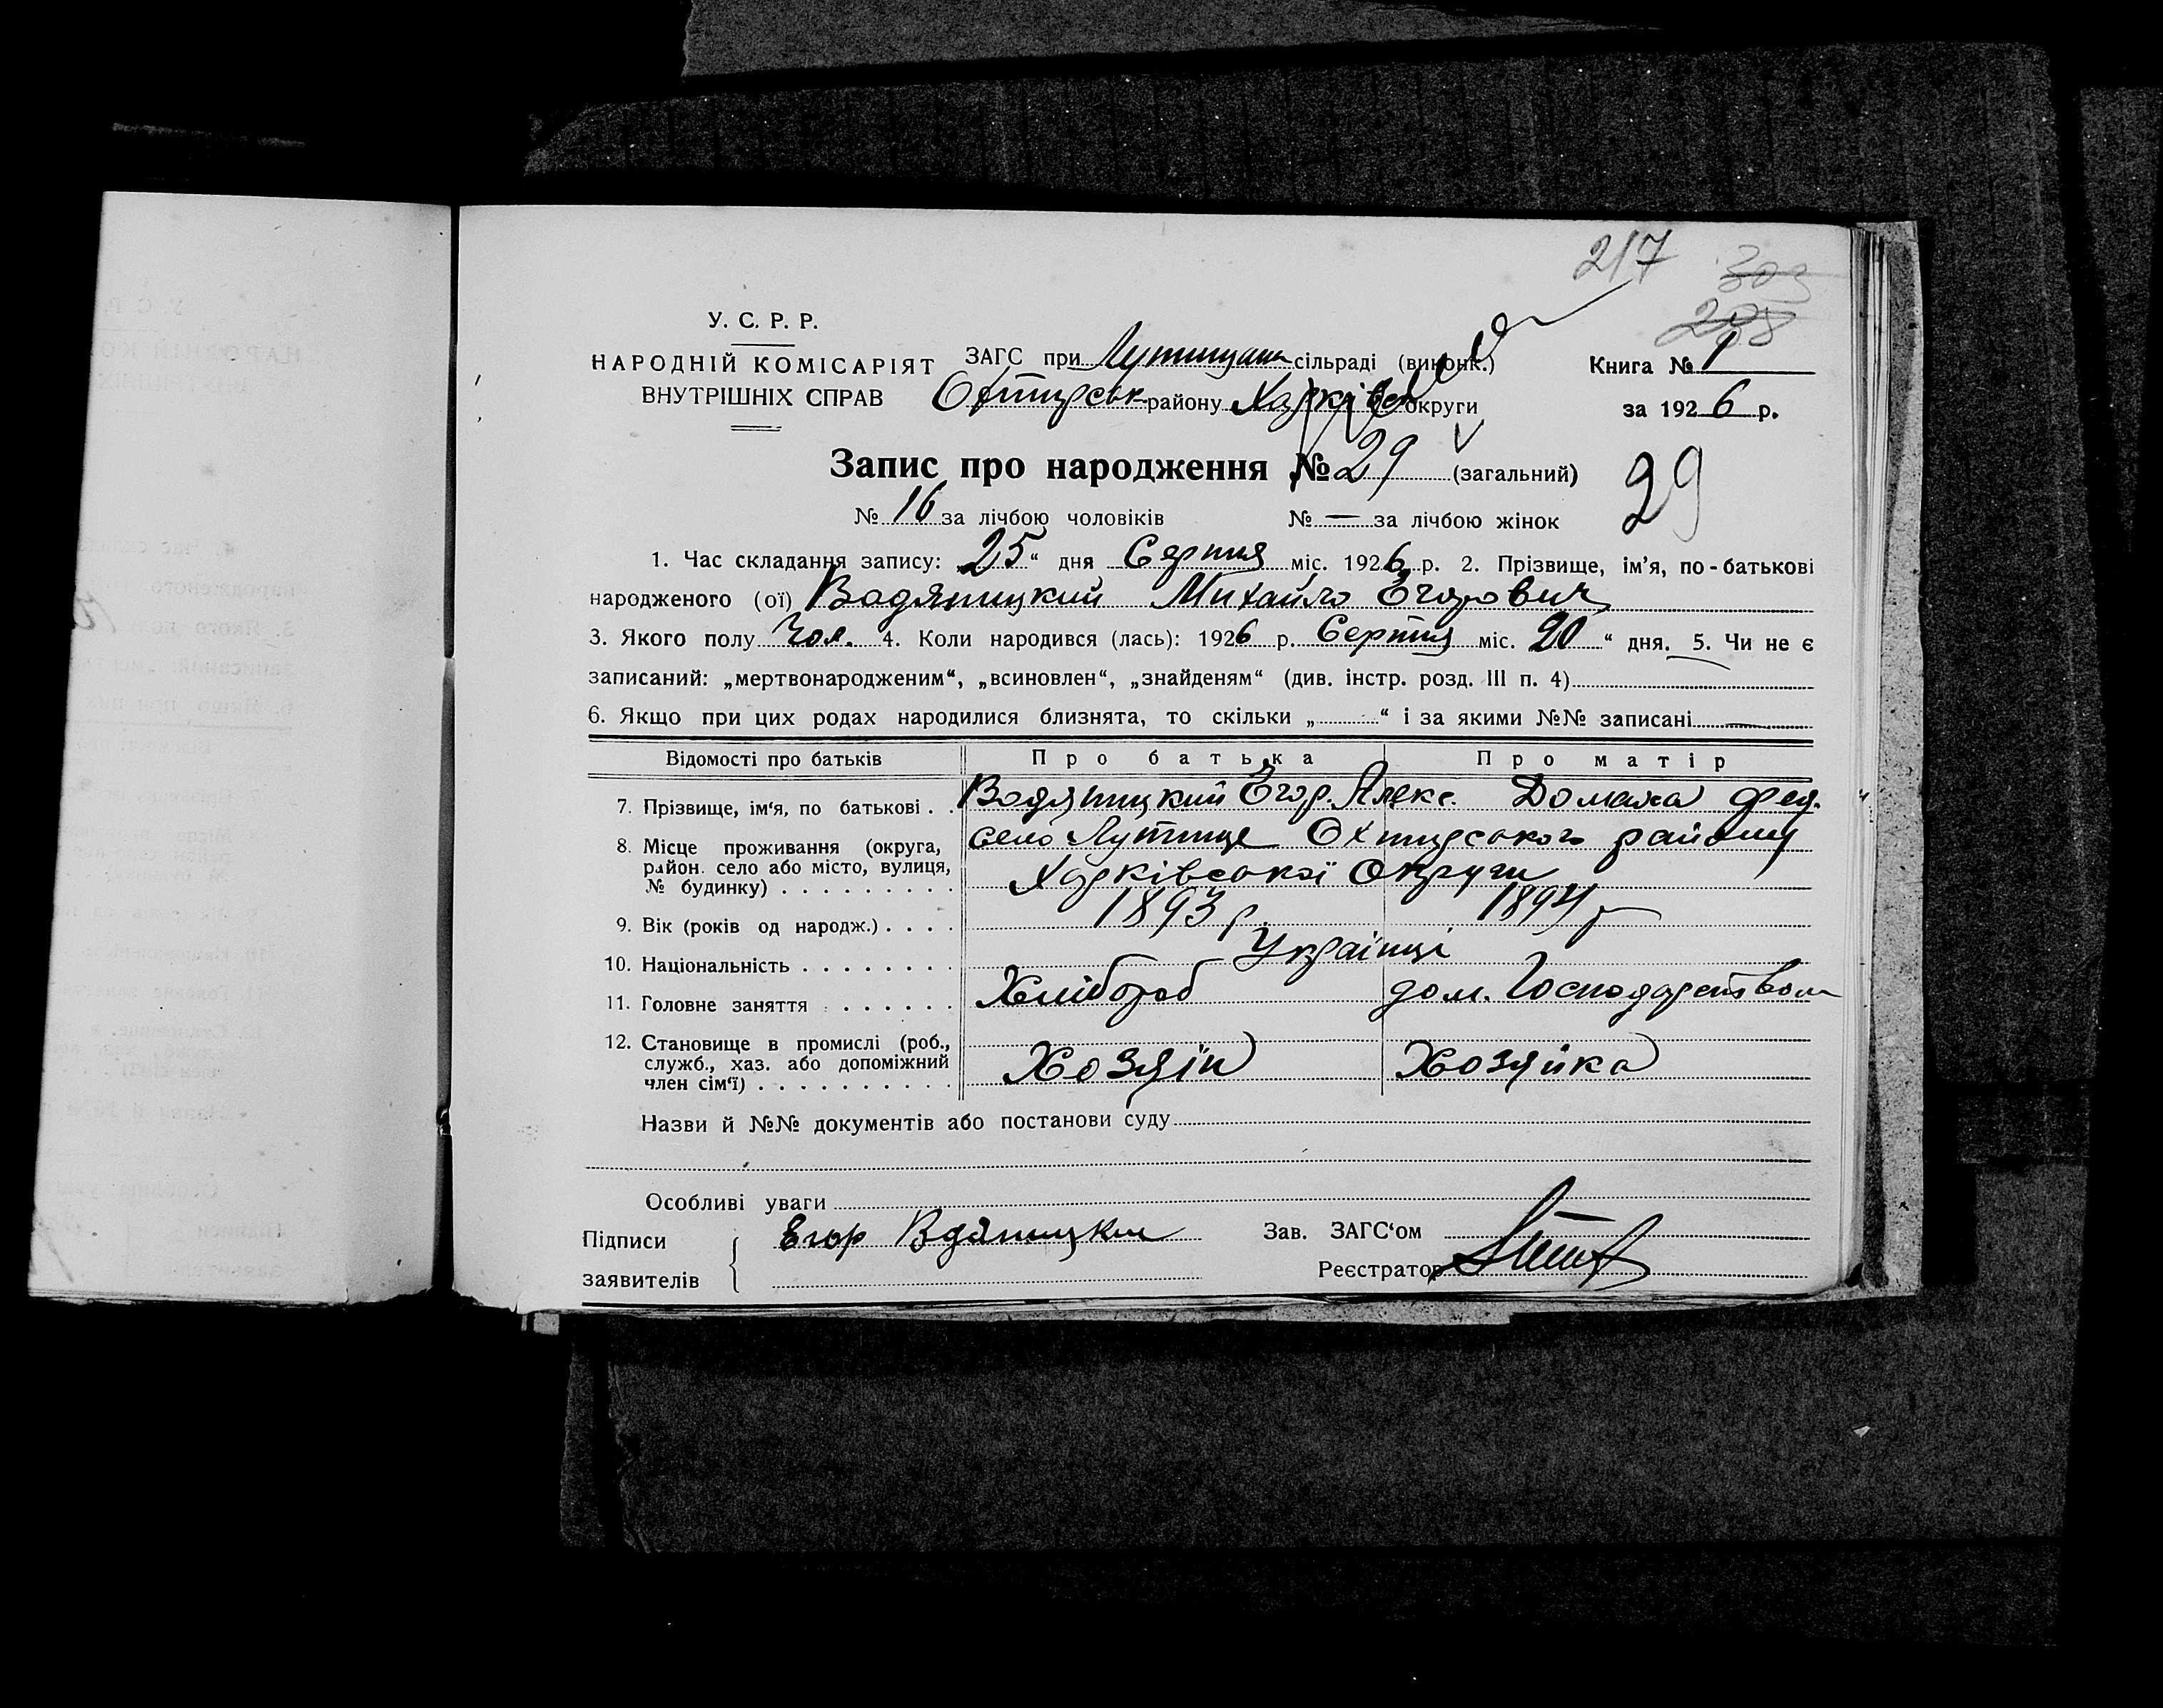 217
303
208
У. С. Р. Р.
НАРОДНІЙ КОМІСАРІЯТ
ВНУТРІШНІХ СПРАВ
ЗАГС при Лутищан сільраді (виконк.)
Охтирськ району Харківс округи
Книга № 1
за 1926 р.
Запис про народження № 29 (загальний)
29
№ 16 за лічбою чоловіків № — за лічбою жінок
1. Час складання запису: „25“ дня Серпня міс. 1926 р. 2. Прізвище, ім'я, по-батькові
народженого (ої) Водяницкий Михайло Егорович
3. Якого полу Чол. 4. Коли народився (лась): 1926 р. Серпня міс. 20 “ дня. 5. Чи не є
записаний: „мертвонародженим“, „всиновлен“, „знайденям“ (див. інстр. розд. III п. 4)
6. Якщо при цих родах народилися близнята, то скільки „ “ і за якими №№ записані —
Відомості про батьків Про батька Про матір
7. Прізвище, ім'я, по батькові . . Водяницкий Егор. Алекс. Домаха Фед.
8. Місце проживання (округа, село Лутище Охтирського району
район. село або місто, вулиця,
№ будинку) . . . . . . . . . Харківської Округи
9. Вік (років од народж.) . . . . 1893 р. 1894 р
10. Національність . . . . . . . . Українці
11. Головне заняття . . . . . . Хлібороб дом. Господарством
12. Становище в промислі (роб.,
служб., хаз. або допоміжний Хозяїн Хозяйка
член сім'ї) . . . . . . . . . .
Назви й №№ документів або постанови суду
Особливі уваги
Підписи Егор Вдяницкий Зав. ЗАГС'ом
заявителів Реєстратор